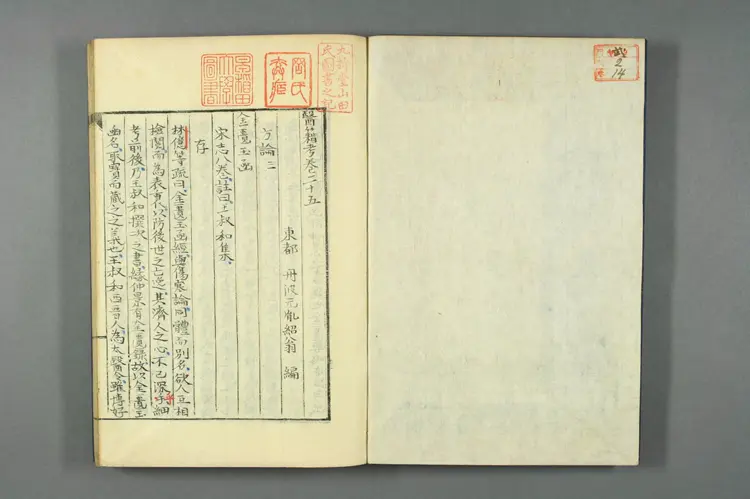 醫籍考卷二十五
東都 丹波元胤紹翁 編
方論三
金匱玉函
宋志八卷註曰王叔和集
存
林億等疏曰金匱玉函經與傷寒論同體而別名欲人互相
撿閱而為表裏以防後世之亡逸其濟人之心不已深乎細
考前後乃王叔和撰次之書緣仲景有金匱錄故以金匱玉
函名取寶而藏之之義也王叔和西晉人為太醫令雖博好
大澤登山田
氏圖書之記
武
2
14